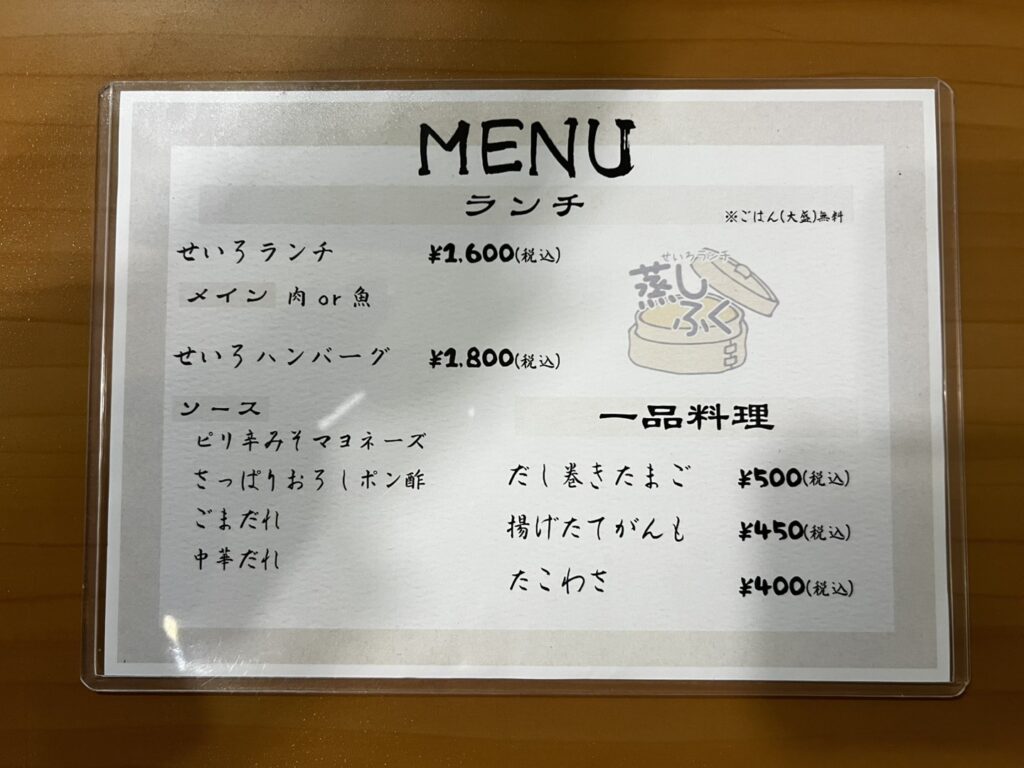 MENU
ランチ
※ごはん(大盛)無料
せいろランチ ¥1,600(税込)
メイン 肉 or 魚
せいろハンバーグ ¥1,800(税込)
ソース
ピリ辛みそマヨネーズ
さっぱりおろしポン酢
ごまだれ
中華だれ
せいろランチ
蒸し
ふく
一品料理
だし巻きたまご ¥500(税込)
揚げたてがんも ¥450(税込)
たこわさ ¥400(税込)